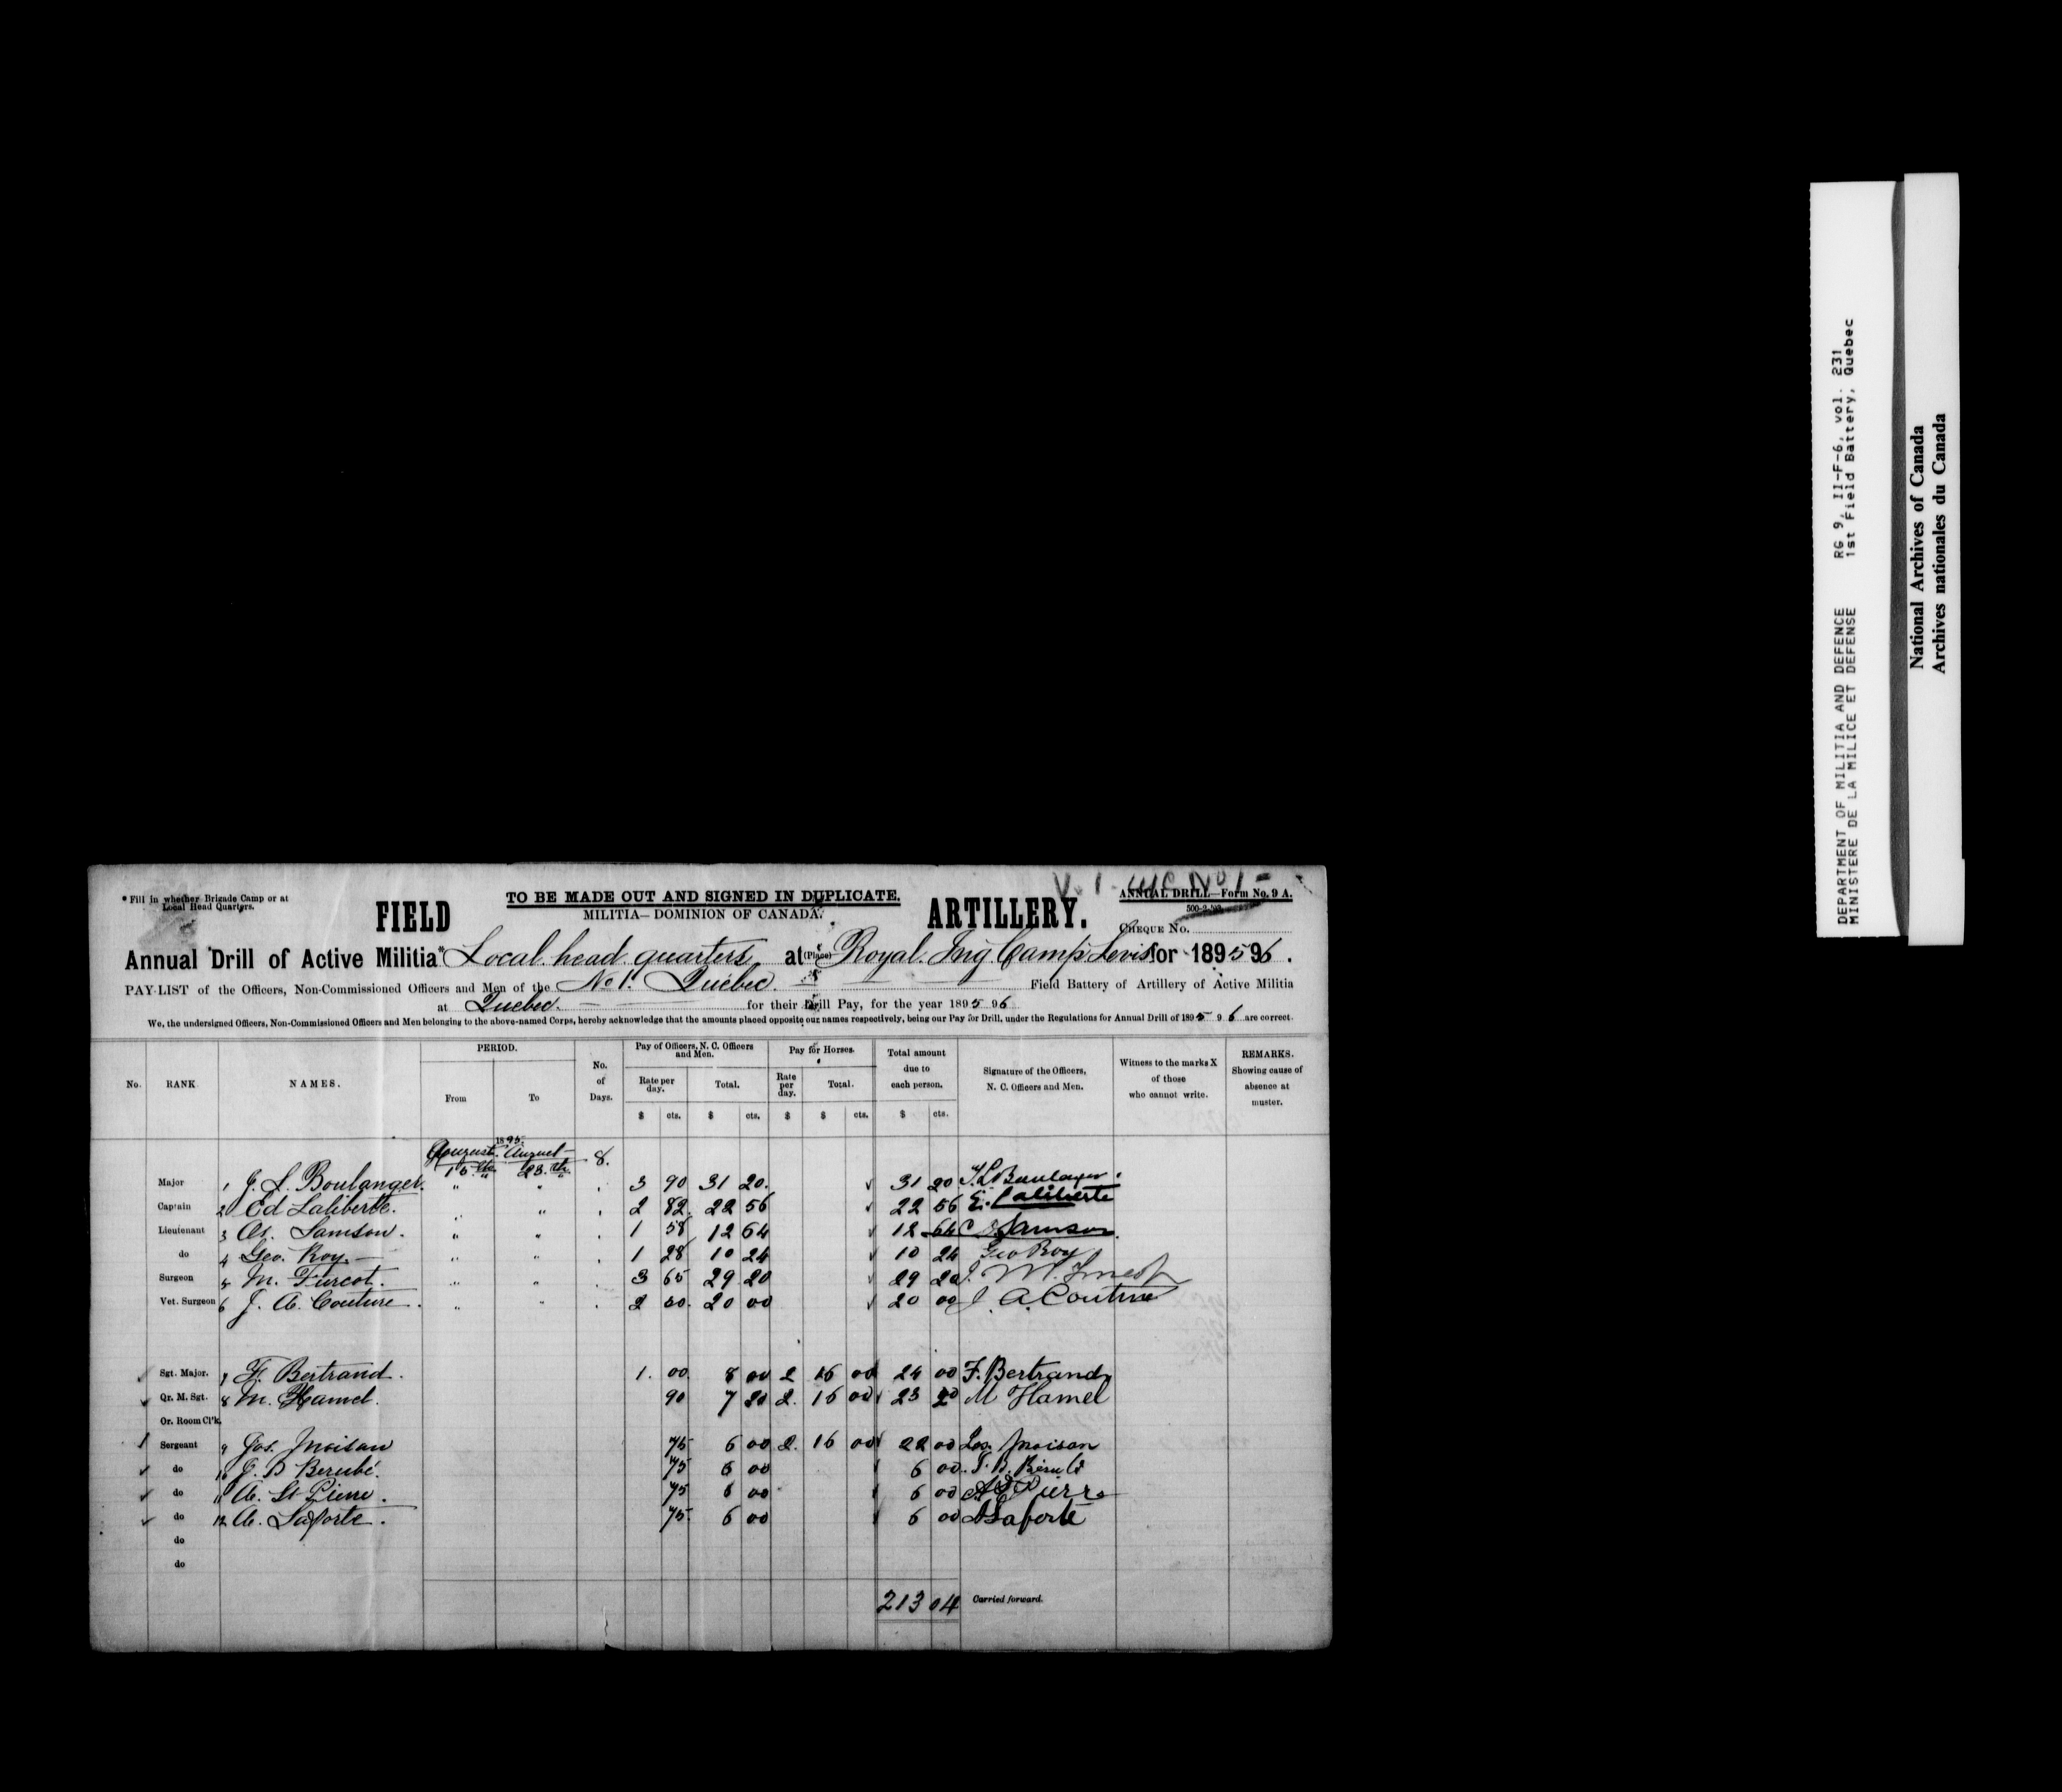 * Fill in whether Brigade Camp or at
Local Head Quarters.
TO BE MADE OUT AND SIGNED IN DUPLICATE.
ANNUAL DRILL—Form No. 9 A.
FIELD MILITIA—DOMINION OF CANADA. ARTILLERY.
CHEQUE No.
Annual Drill of Active Militia* Local head quarters at (Place) Royal Ing Camp Levis for 1895 96.
PAY-LIST of the Officers, Non-Commissioned Officers and Men of the No 1. Québec. Field Battery of Artillery of Active Militia
at Quebec. for their Drill Pay, for the year 1895 96
We, the undersigned Officers, Non-Commissioned Officers and Men belonging to the above-named Corps, hereby acknowledge that the amounts placed opposite our names respectively, being our Pay for Drill, under the Regulations for Annual Drill of 1895 96 are correct.
No. RANK NAMES. PERIOD. From To No. of Days. Pay of Officers, N. C. Officers and Men. Rate per day. Total. Pay for Horses. Rate per day. Total. Total amount due to each person. Signature of the Officers, N. C. Officers and Men. Witness to the marks X of those who cannot write. REMARKS. Showing cause of absence at muster.
$ cts. $ cts. $ $ cts. $ cts.
1895.
August August 8.
23.th
Major 1 J. L. Boulanger. " " 3 90 31 20. 31 20 Boulanger
Captain 2 Ed Laliberté. " " 2 82 22 56 22 56 E. Laliberté
Lieutenant 3 Samson. " " 1 58 12 64 12 64 Samson
do 4 Geo. Roy. " " 1 28 10 24 10 24 Geo Roy
Surgeon 5 M. Turcot. " " 3 65 29 20 29 20 M.
Vet. Surgeon 6 J. A. Couture. " " 2 50 20 00 20 00 J. A. Couture
Sgt. Major. 7 F. Bertrand. 1. 00 8 00 2 16 00 24 00 F. Bertrand
Qr. M. Sgt. 8 M. Hamel. 90 7 20 2. 16 00 23 20 M Hamel
Or. Room Cl'k.
Sergeant 9 Jos. Moisan 75 6 00 2. 16 00 22 00 Jos. Moisan
do 10 J. B Berubé. 75 6 00 6 00 J. B. Bérubé
do 11 A. St Pierre. 75 6 00 6 00 A St Pierre
do 12 A. Laforte. 75 6 00 6 00 A Laforte
do
do
213 04 Carried forward.
DEPARTMENT OF MILITIA AND DEFENCE RG 9, II-F-6, vol. 231
MINISTERE DE LA MILICE ET DEFENSE 1st Field Battery, Quebec
National Archives of Canada
Archives nationales du Canada